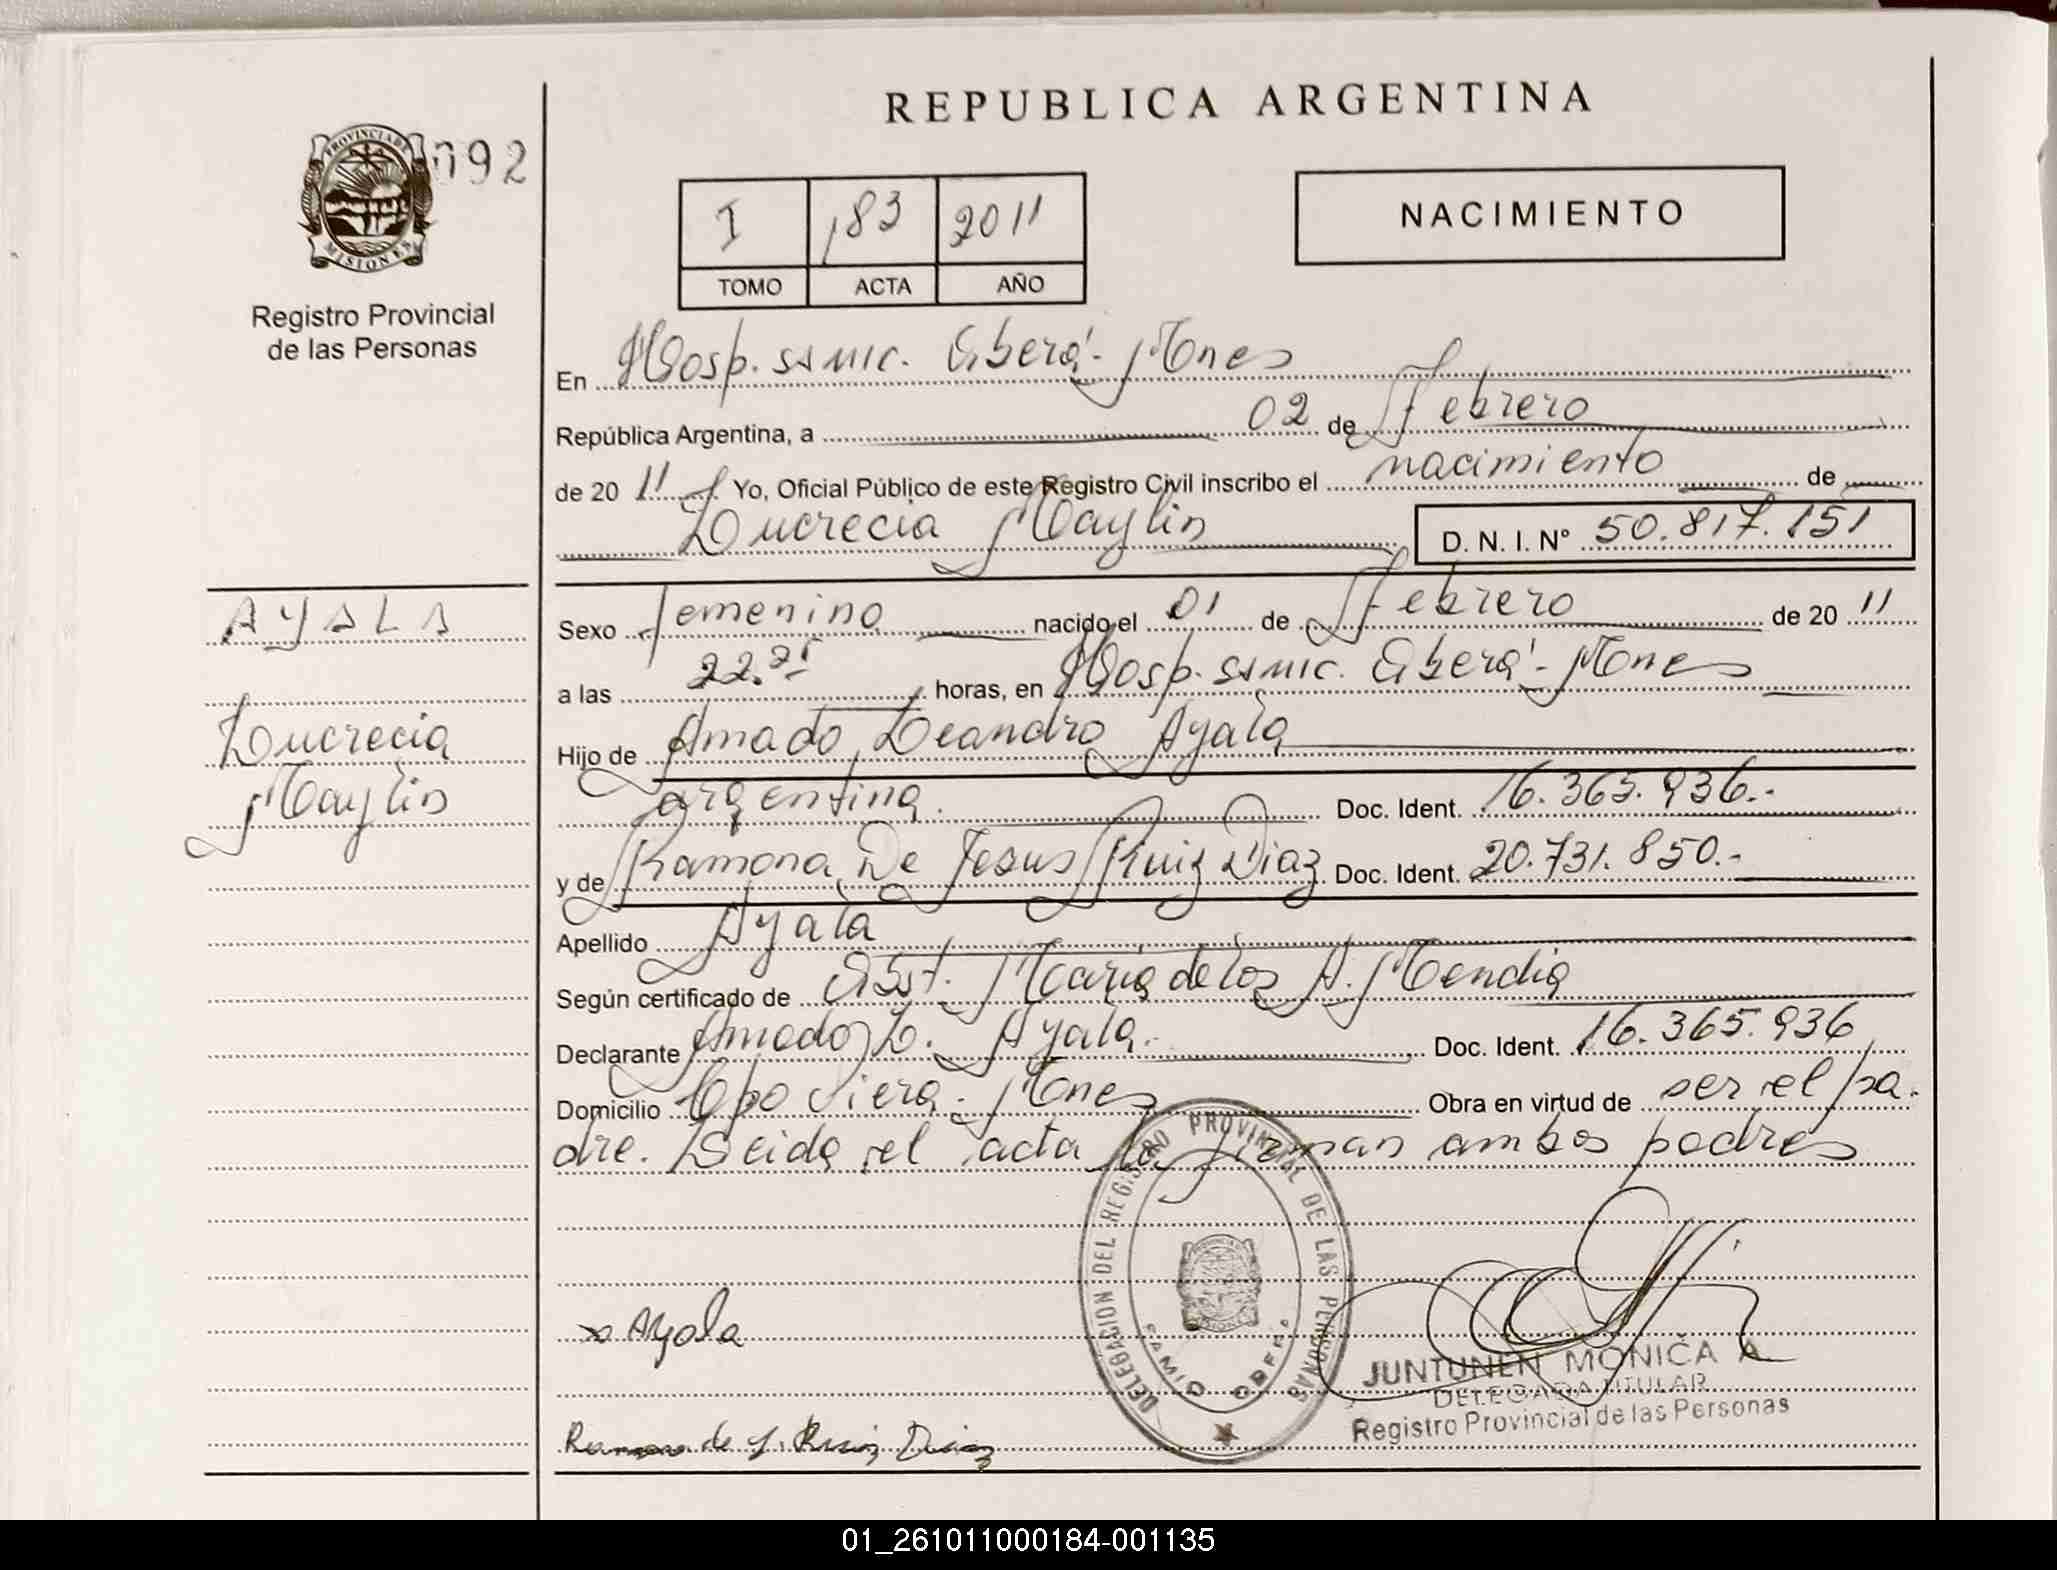 REPUBLICA ARGENTINA
PROVINCIA DE MISIONES
092
Registro Provincial
de las Personas
I 183 2011
TOMO ACTA AÑO
NACIMIENTO
En Hosp. SAMIC. Oberá - Mnes
República Argentina, a 02 de Febrero
de 2011 Yo, Oficial Público de este Registro Civil inscribo el nacimiento de
Lucrecia Maylin D. N. I. Nº 50.817.151
AYALA
Lucrecia
Maylin
Sexo femenino nacido el 01 de Febrero de 2011
a las 22.25 horas, en Hosp. SAMIC. Oberá - Mnes
Hijo de Amado Leandro Ayala
argentina. Doc. Ident. 16.365.936.-
y de Ramona De Jesus Ruiz Diaz Doc. Ident. 20.731.850.-
Apellido Ayala
Según certificado de Obst. Maria de los A. Mendia
Declarante Amado L. Ayala.- Doc. Ident. 16.365.936
Domicilio Cpo Viera - Mnes Obra en virtud de ser el pa-
dre. Leida el acta la firman ambos padres
Ayala
Ramona de J. Ruiz Diaz
DELEGACION DEL REGISTRO PROVINCIAL DE LAS PERSONAS
JUNTUNEN MONICA A
DELEGADA TITULAR
Registro Provincial de las Personas
01_261011000184-001135